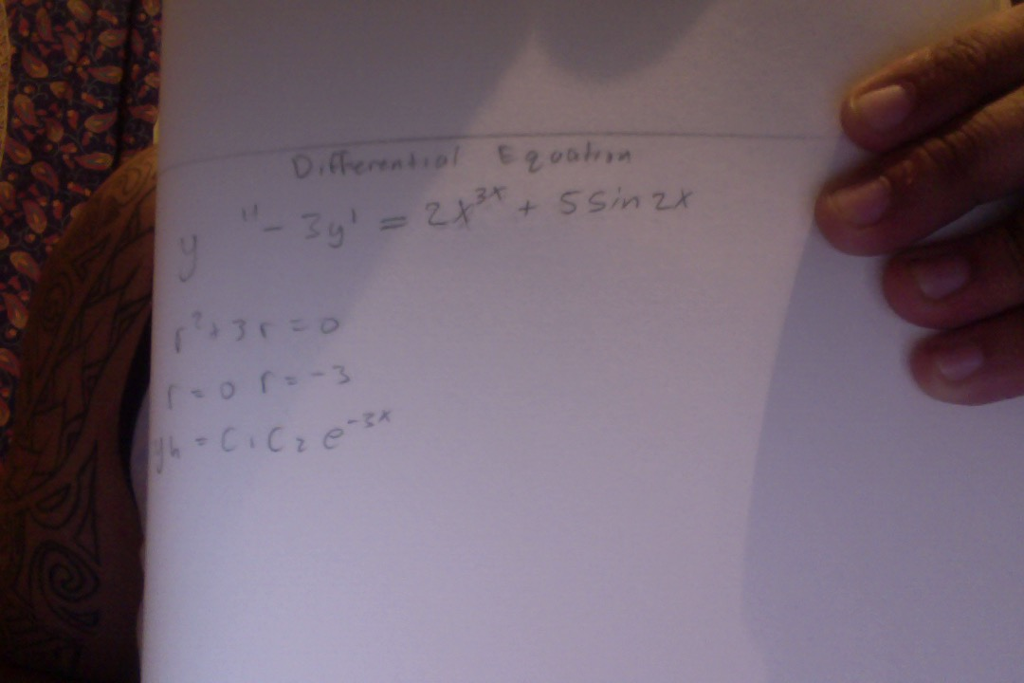 Differential Equation
y'' - 3y' = 2x^{3x} + 5 sin 2x
r² + 3r = 0
r = 0 r = -3
yh = C₁ C₂ e^{-3x}